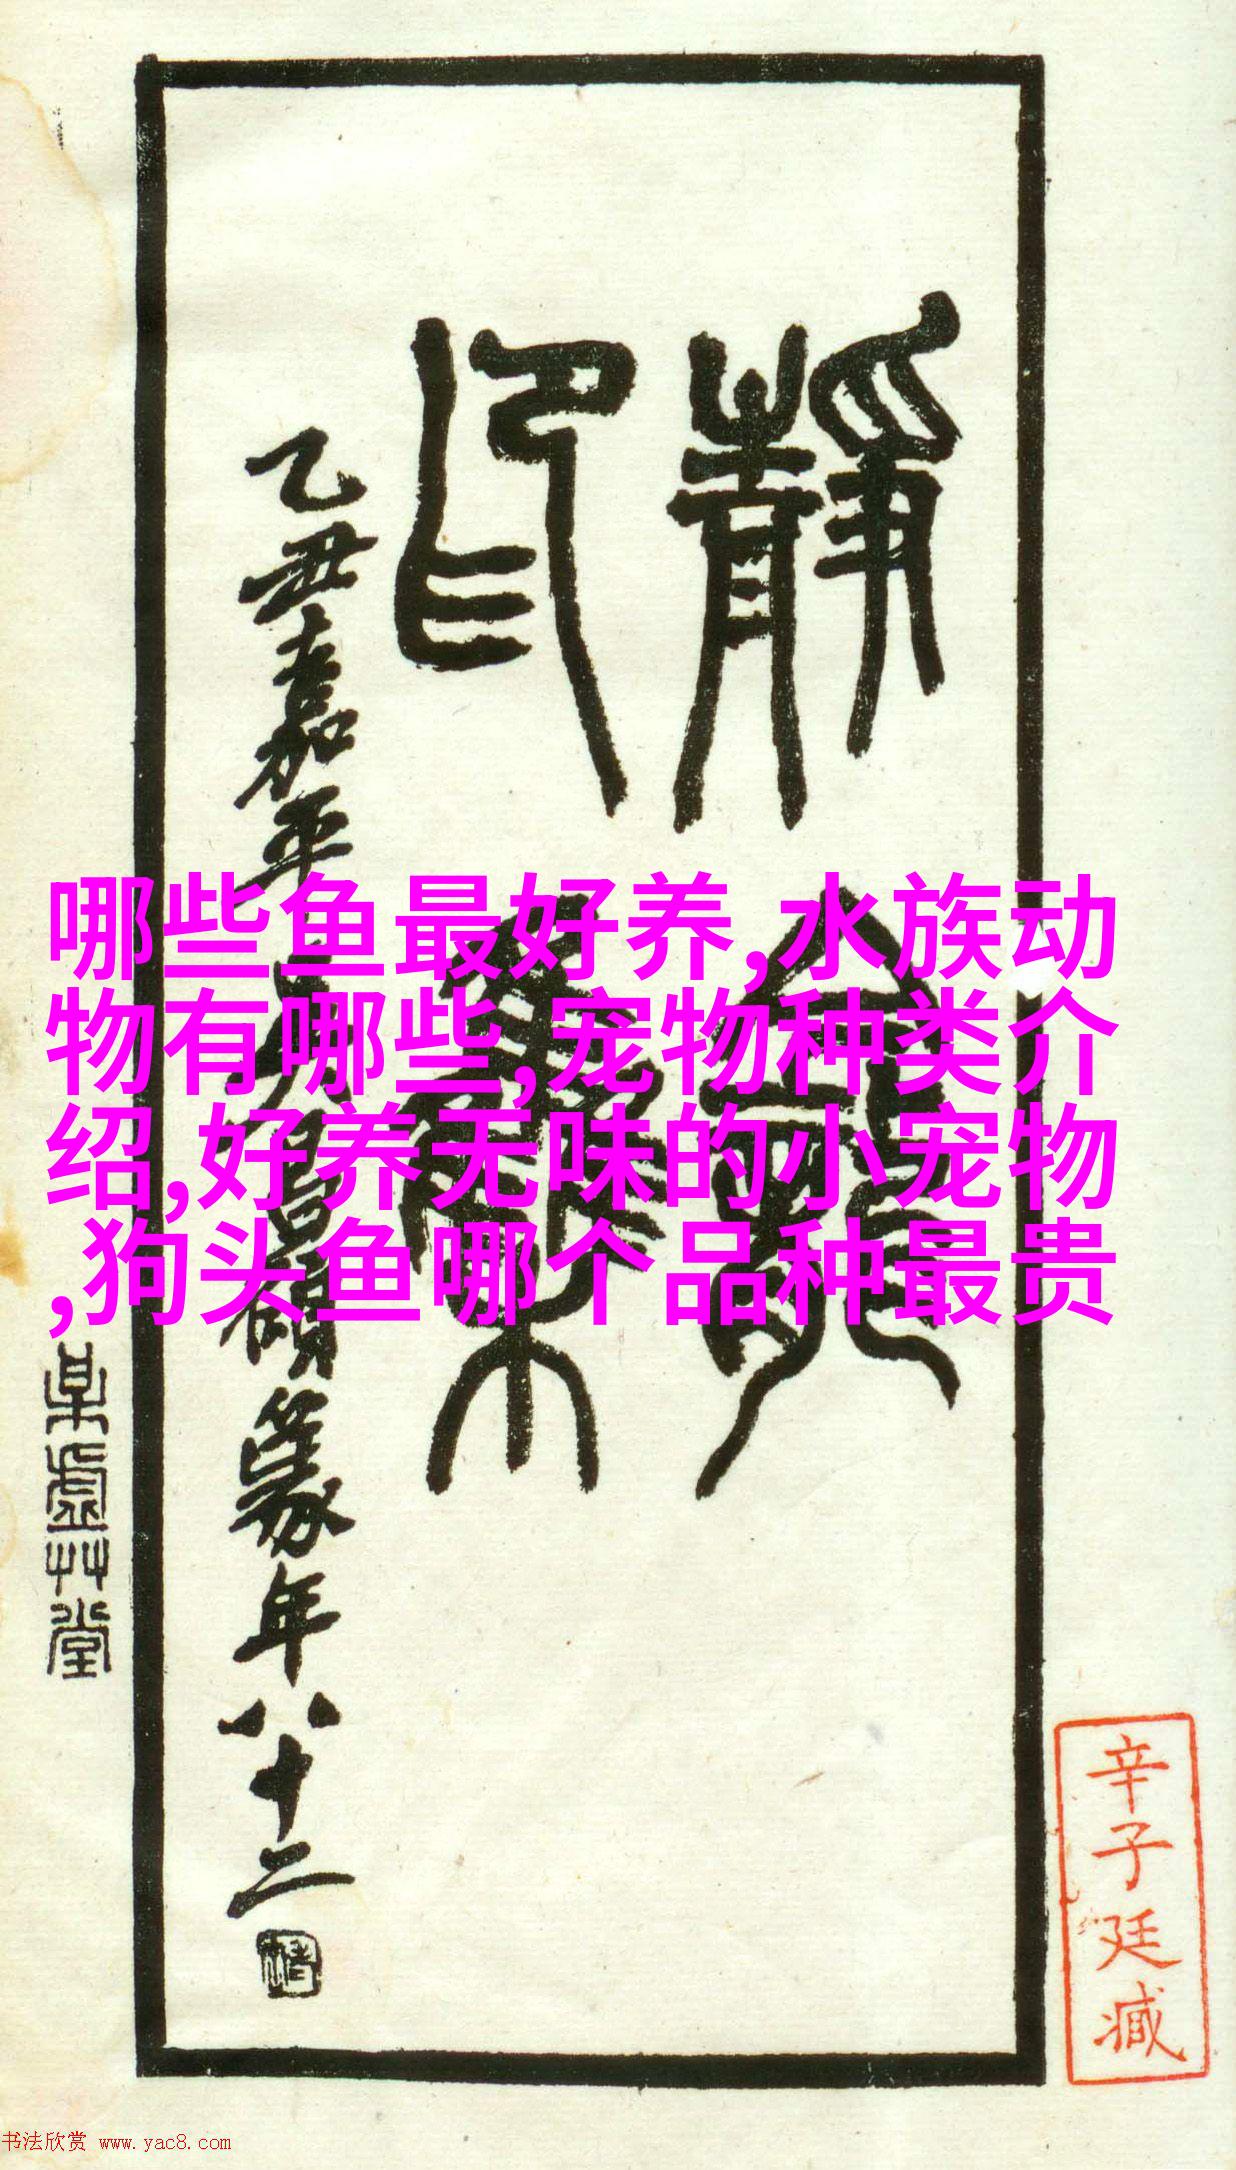 哪些鱼最好养,水族动
物有哪些,宠物种类介
绍,好养无味的小宠物
,狗头鱼哪个品种最贵
靜龕
印集
乙丑嘉平吳昌碩篆年八十二
某虛艸堂
辛子廷臧
书法欣赏 www.yac8.com